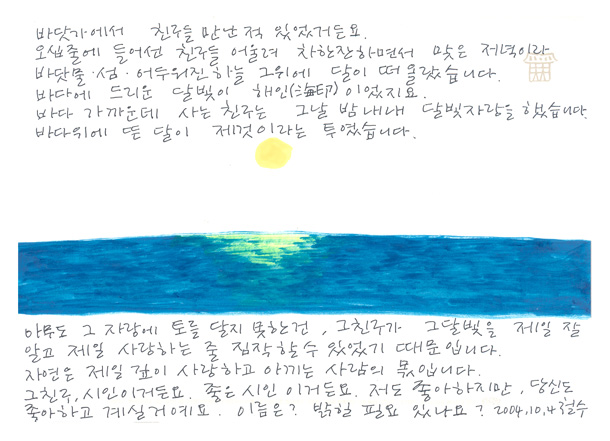 바닷가에서 친구들 만난적 있었거든요.
오십줄에 들어선 친구들 어울려 차한잔하면서 맞은 저녁이라
바닷물·섬·어두워진하늘 그위에 달이 떠 올랐습니다.
바다에 드리운 달빛이 해인(海印)이었지요.
바다 가까운데 사는 친구는 그날 밤 내내 달빛자랑을 했습니다.
바다위에 뜬 달이 제것이라는 투였습니다.
아무도 그 자랑에 토를 달지 못한건, 그친구가 그달빛을 제일 잘
알고 제일 사랑하는 줄 짐작할수 있었기 때문입니다.
자연은 제일 깊이 사랑하고 아끼는 사람의 몫입니다.
그친구, 시인이거든요. 좋은 시인 이거든요. 저도 좋아하지만, 당신도
좋아하고 계실거예요. 이름은? 밝힐 필요 있나요? 2004.10.4 철수